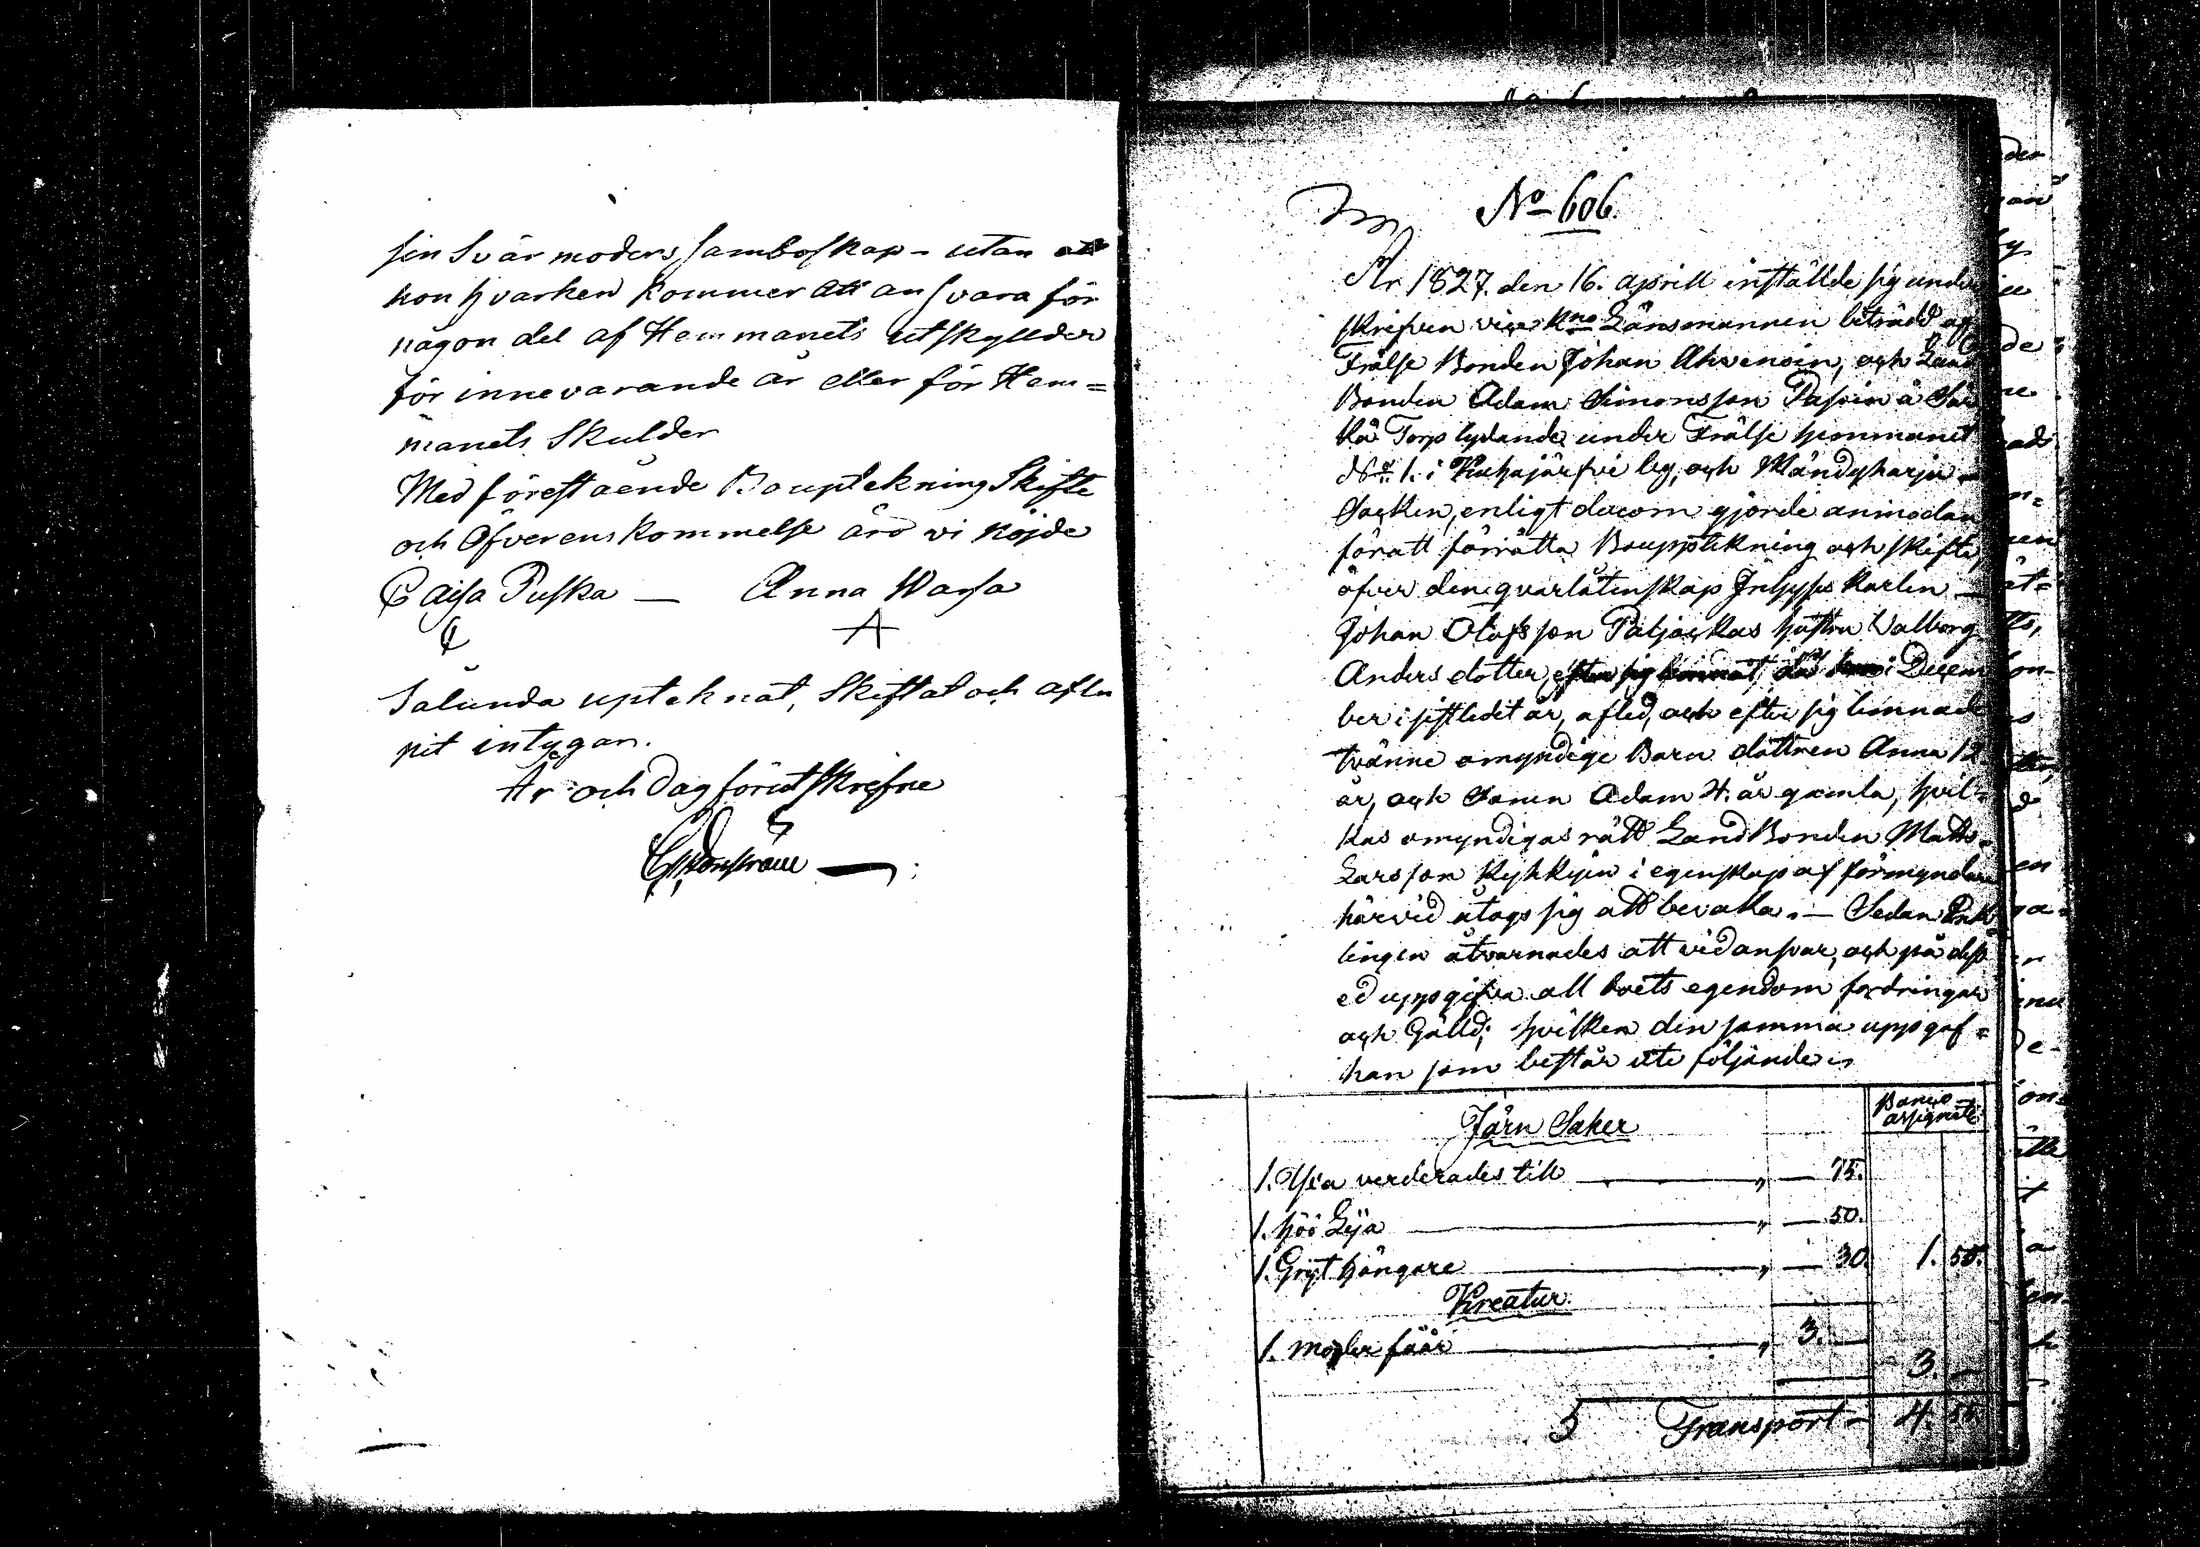 sin Svärmoders samboskap - utan att
hon hvarken kommer att ansvara för
någon del af Hemmanets utskyllder
för innevarande år eller för Hem=
manets Skulder
Med förestående Bouptekning Skifte
och Öfverenskommelse äro vi nöjde
Caisa Puska — Anna Warsa
Sålunda upteknat, Skiftat och aflu
pit intygar.
År och Dag förut skrefne
No 606.
År 1827. den 16. aprill inställde sig under
skrifven vice Kno Länsmannen biträdd af
Frälse Bonden Johan Ahvenain, och Land
Bonden Adam Simonsson Pasoin å
kä Torp lydande under Frälse hemmanet
No 1. i Kuhajärfvi by, och Mändyharju
Socken, enligt derom gjorde anmodan
för att förrätta Bouppteкning och skifte,
öfver den qvarlåtenskap Inhyses Karlen —
Johan Olofsson Paljackas hustru Valborg
Anders dotter, efter sig lemnat, då hon i Decem
ber i sistledet år, afled, och efter sig lemnade
tvänne omyndige Barn dottren Anna 12
år, och Sonen Adam 4. år gamla, hvil=
kas omyndigas rätt LandBonden Matts
Larsson Kykkyin i egenskap af förmyndare
härvid åtogs sig att bevaka. — Sedan Enk
lingen åtvarnades att vid ansvar, och på dess
ed uppgifva all boets egendom fordringar
och Gälld; hvilken den samma uppgaf=
han som består uti följande:
Banco
assignate
Järn Saker
1. Yxa verderades till — " — 75.
1. höö Lija — " — 50.
1. Gryt hängare — " — 30. 1. 55.
Kreatur
1. moder fåår — " 3. —
3. —
Transport — 4. 55.